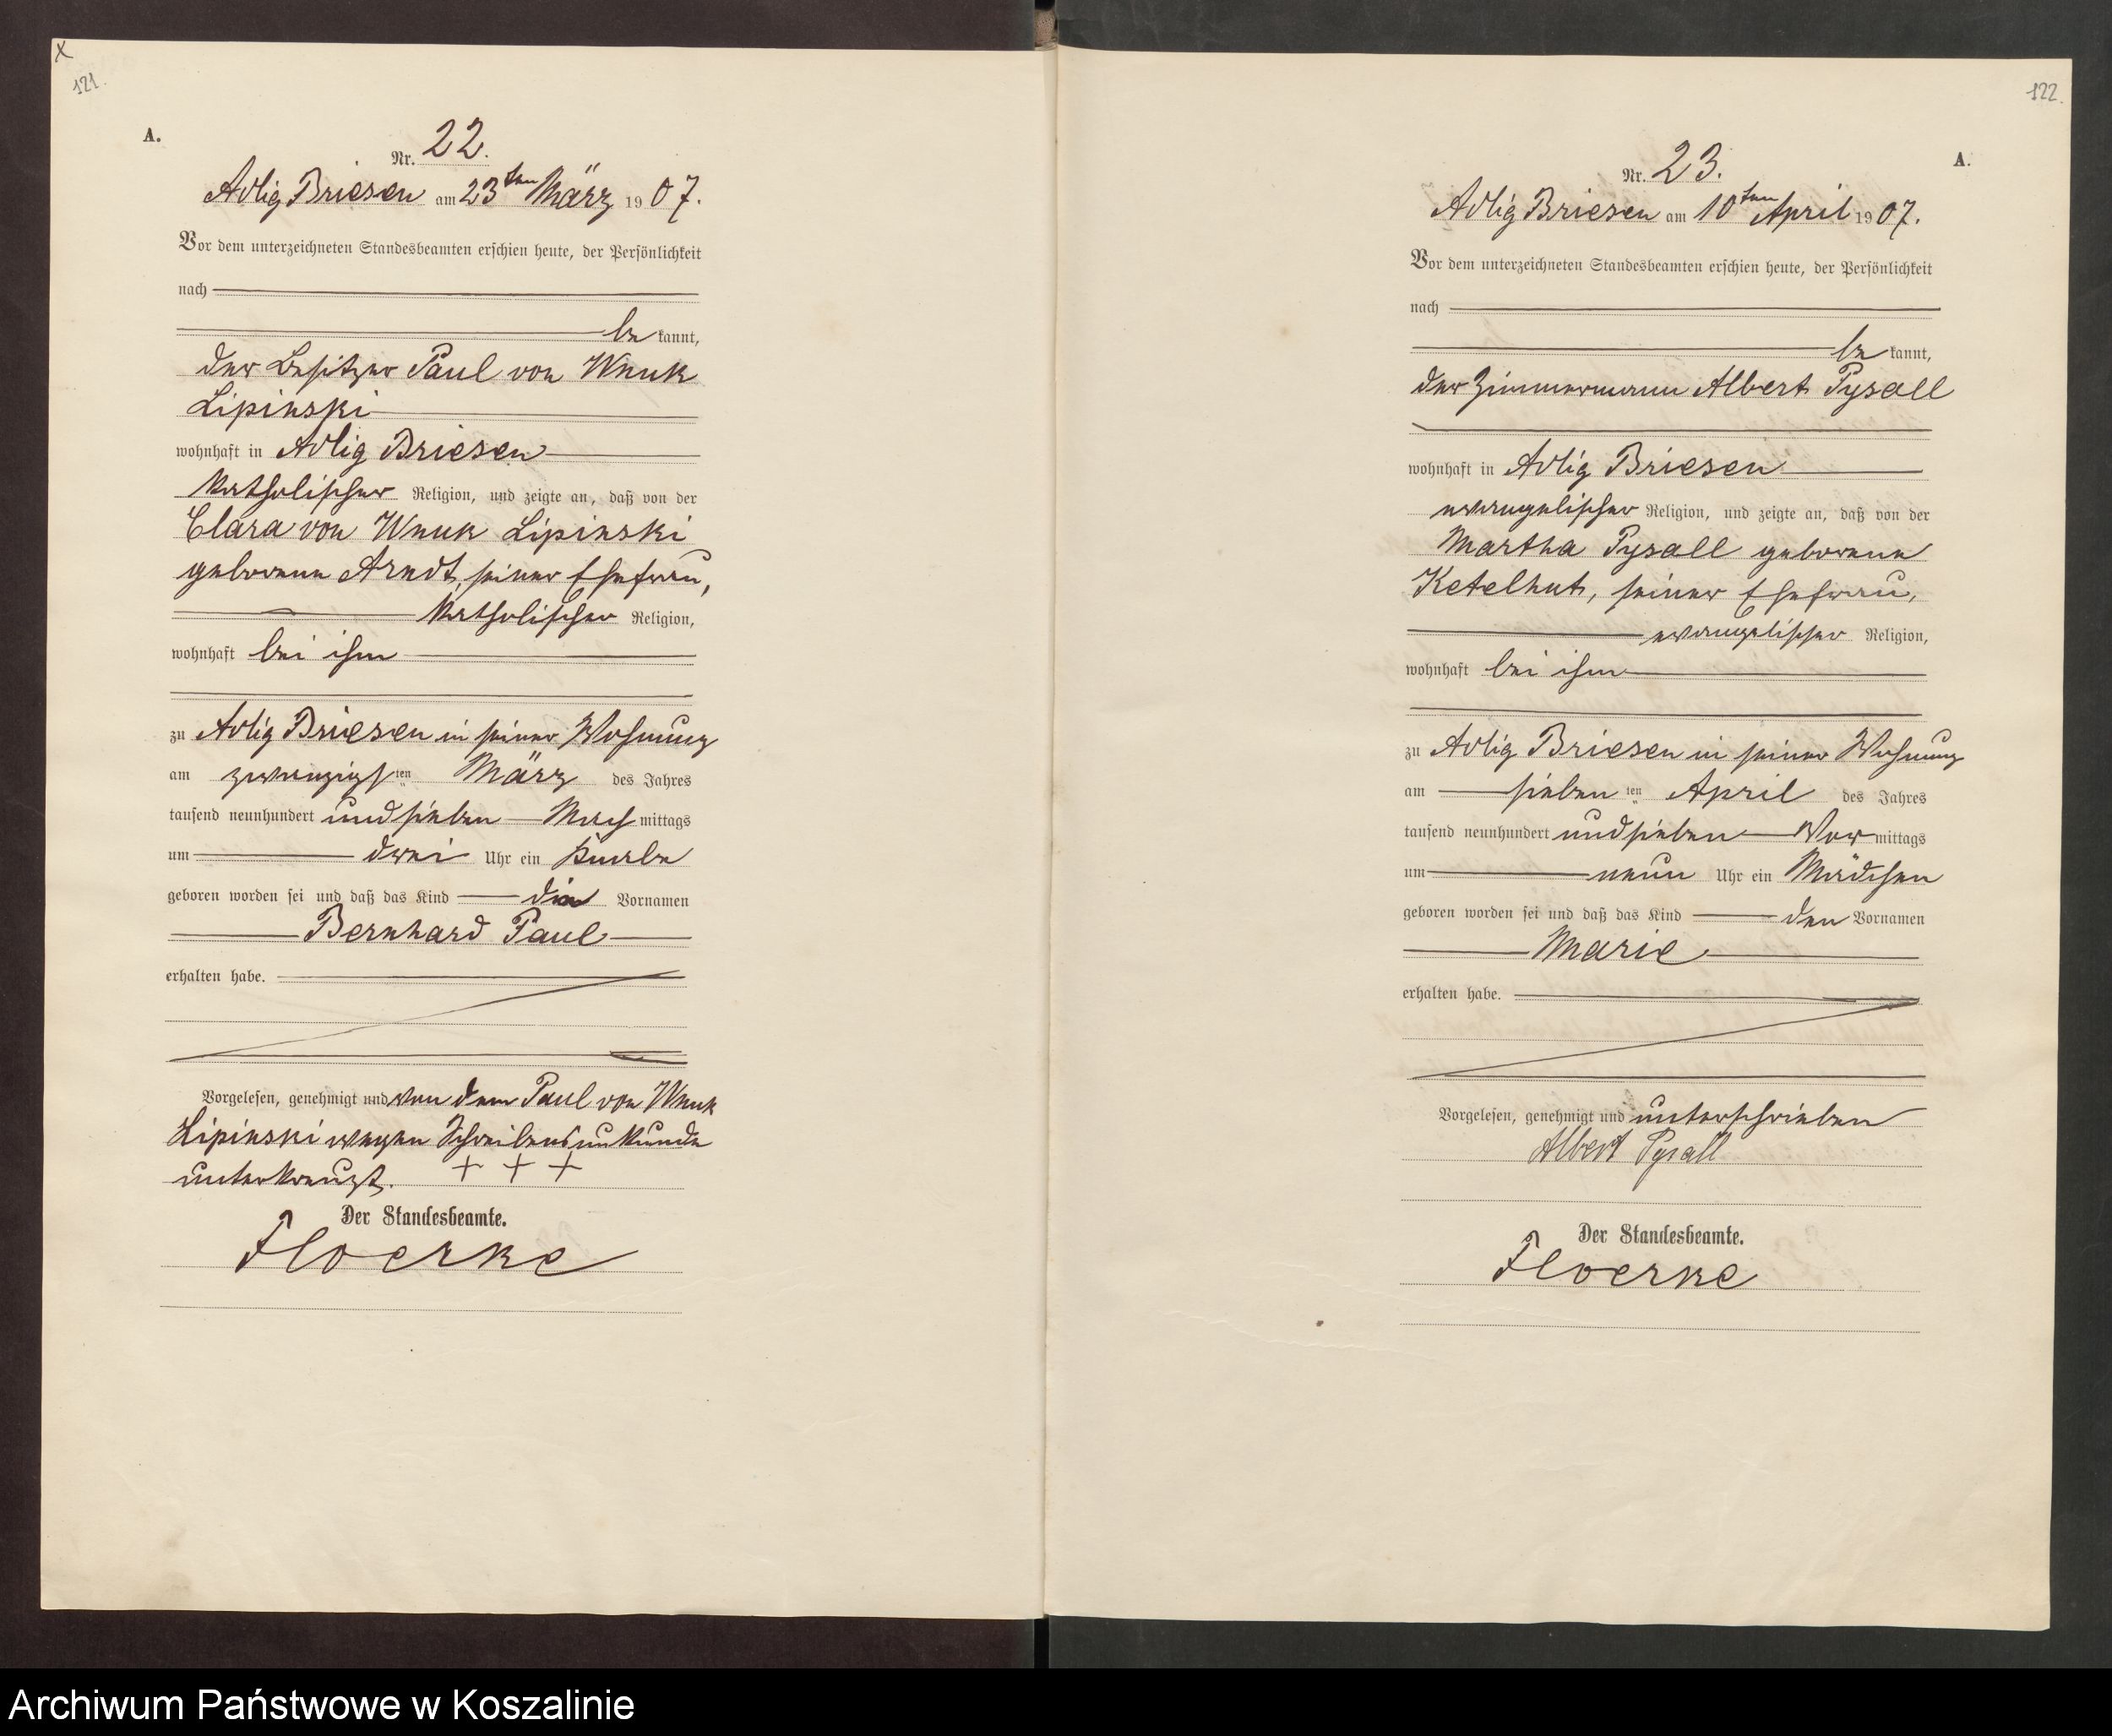 X
121.
A.
Nr. 22.
Adlig Briesen am 23ten März 1907.
Vor dem unterzeichneten Standesbeamten erschien heute, der Persönlichkeit
nach
be kannt,
der Besitzer Paul von Wnuk
Lipinski
wohnhaft in Adlig Briesen
katholischer Religion, und zeigte an, daß von der
Clara von Wnuk Lipinski
geborene Arndt, seiner Ehefrau,
katholischer Religion,
wohnhaft bei ihm
zu Adlig Briesen in seiner Wohnung
am zwanzigsten März des Jahres
tausend neunhundert und sieben Nach mittags
um drei Uhr ein Knabe
geboren worden sei und daß das Kind die Vornamen
Bernhard Paul
erhalten habe.
Vorgelesen, genehmigt und von dem Paul von Wnuk
Lipinski wegen Schreibensunkunde
unterkreuzt. + + +
Der Standesbeamte.
Floerke
122.
A.
Nr. 23.
Adlig Briesen am 10ten April 1907.
Vor dem unterzeichneten Standesbeamten erschien heute, der Persönlichkeit
nach
be kannt,
der Zimmermann Albert Pysall
wohnhaft in Adlig Briesen
evangelischer Religion, und zeigte an, daß von der
Martha Pysall geborene
Ketelhut, seiner Ehefrau,
evangelischer Religion,
wohnhaft bei ihm
zu Adlig Briesen in seiner Wohnung
am sieben ten April des Jahres
tausend neunhundert und sieben Vor mittags
um neun Uhr ein Mädchen
geboren worden sei und daß das Kind den Vornamen
Marie
erhalten habe.
Vorgelesen, genehmigt und unterschrieben
Albert Pysall
Der Standesbeamte.
Floerke
Archiwum Państwowe w Koszalinie